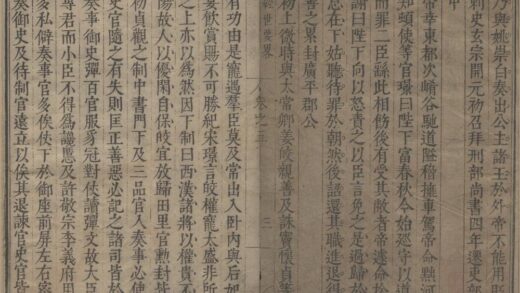 乃與姚崇白奏出公主諸王於外帝不能用貶
刺史玄宗開元初召拜刑部尚書四年遷吏部
中
帝幸東都次崤谷馳道隘稽擁車駕帝命黜河
知頓使等官璟曰陛下富春秋今始巡守以道
而罪二臣繇此相飭後有受其敝者帝遽命
謝曰陛下向以怒責之以言免之是過歸於
恩在下姑聽待罪於朝然後詔還其職進退得
善之累封廣平郡公
初上微時與太常卿姜皎親善及誅竇懷貞等
經世要畧 卷之五
有功由是寵遇羣臣莫及常出入卧內與后妃
宴飲賞賜不可勝紀宋璟言皎權寵太盛非所
之上亦以為然因下制曰西漢諸將以權貴不
陽故人以優閑自保皎宜放歸田里官勲封皆
初貞觀之制中書門下及三品官入奏事必使
史官隨之有失則匡正善惡必記之諸司皆於
奏事御史彈百官服豸冠對仗讀彈文故大臣
尊君而小臣不得為讒慝及許敬宗李義府用
多私僻奏事官多俟仗下於御座前屏左右密
奏御史及待制官遠立以俟其退諫官史官皆